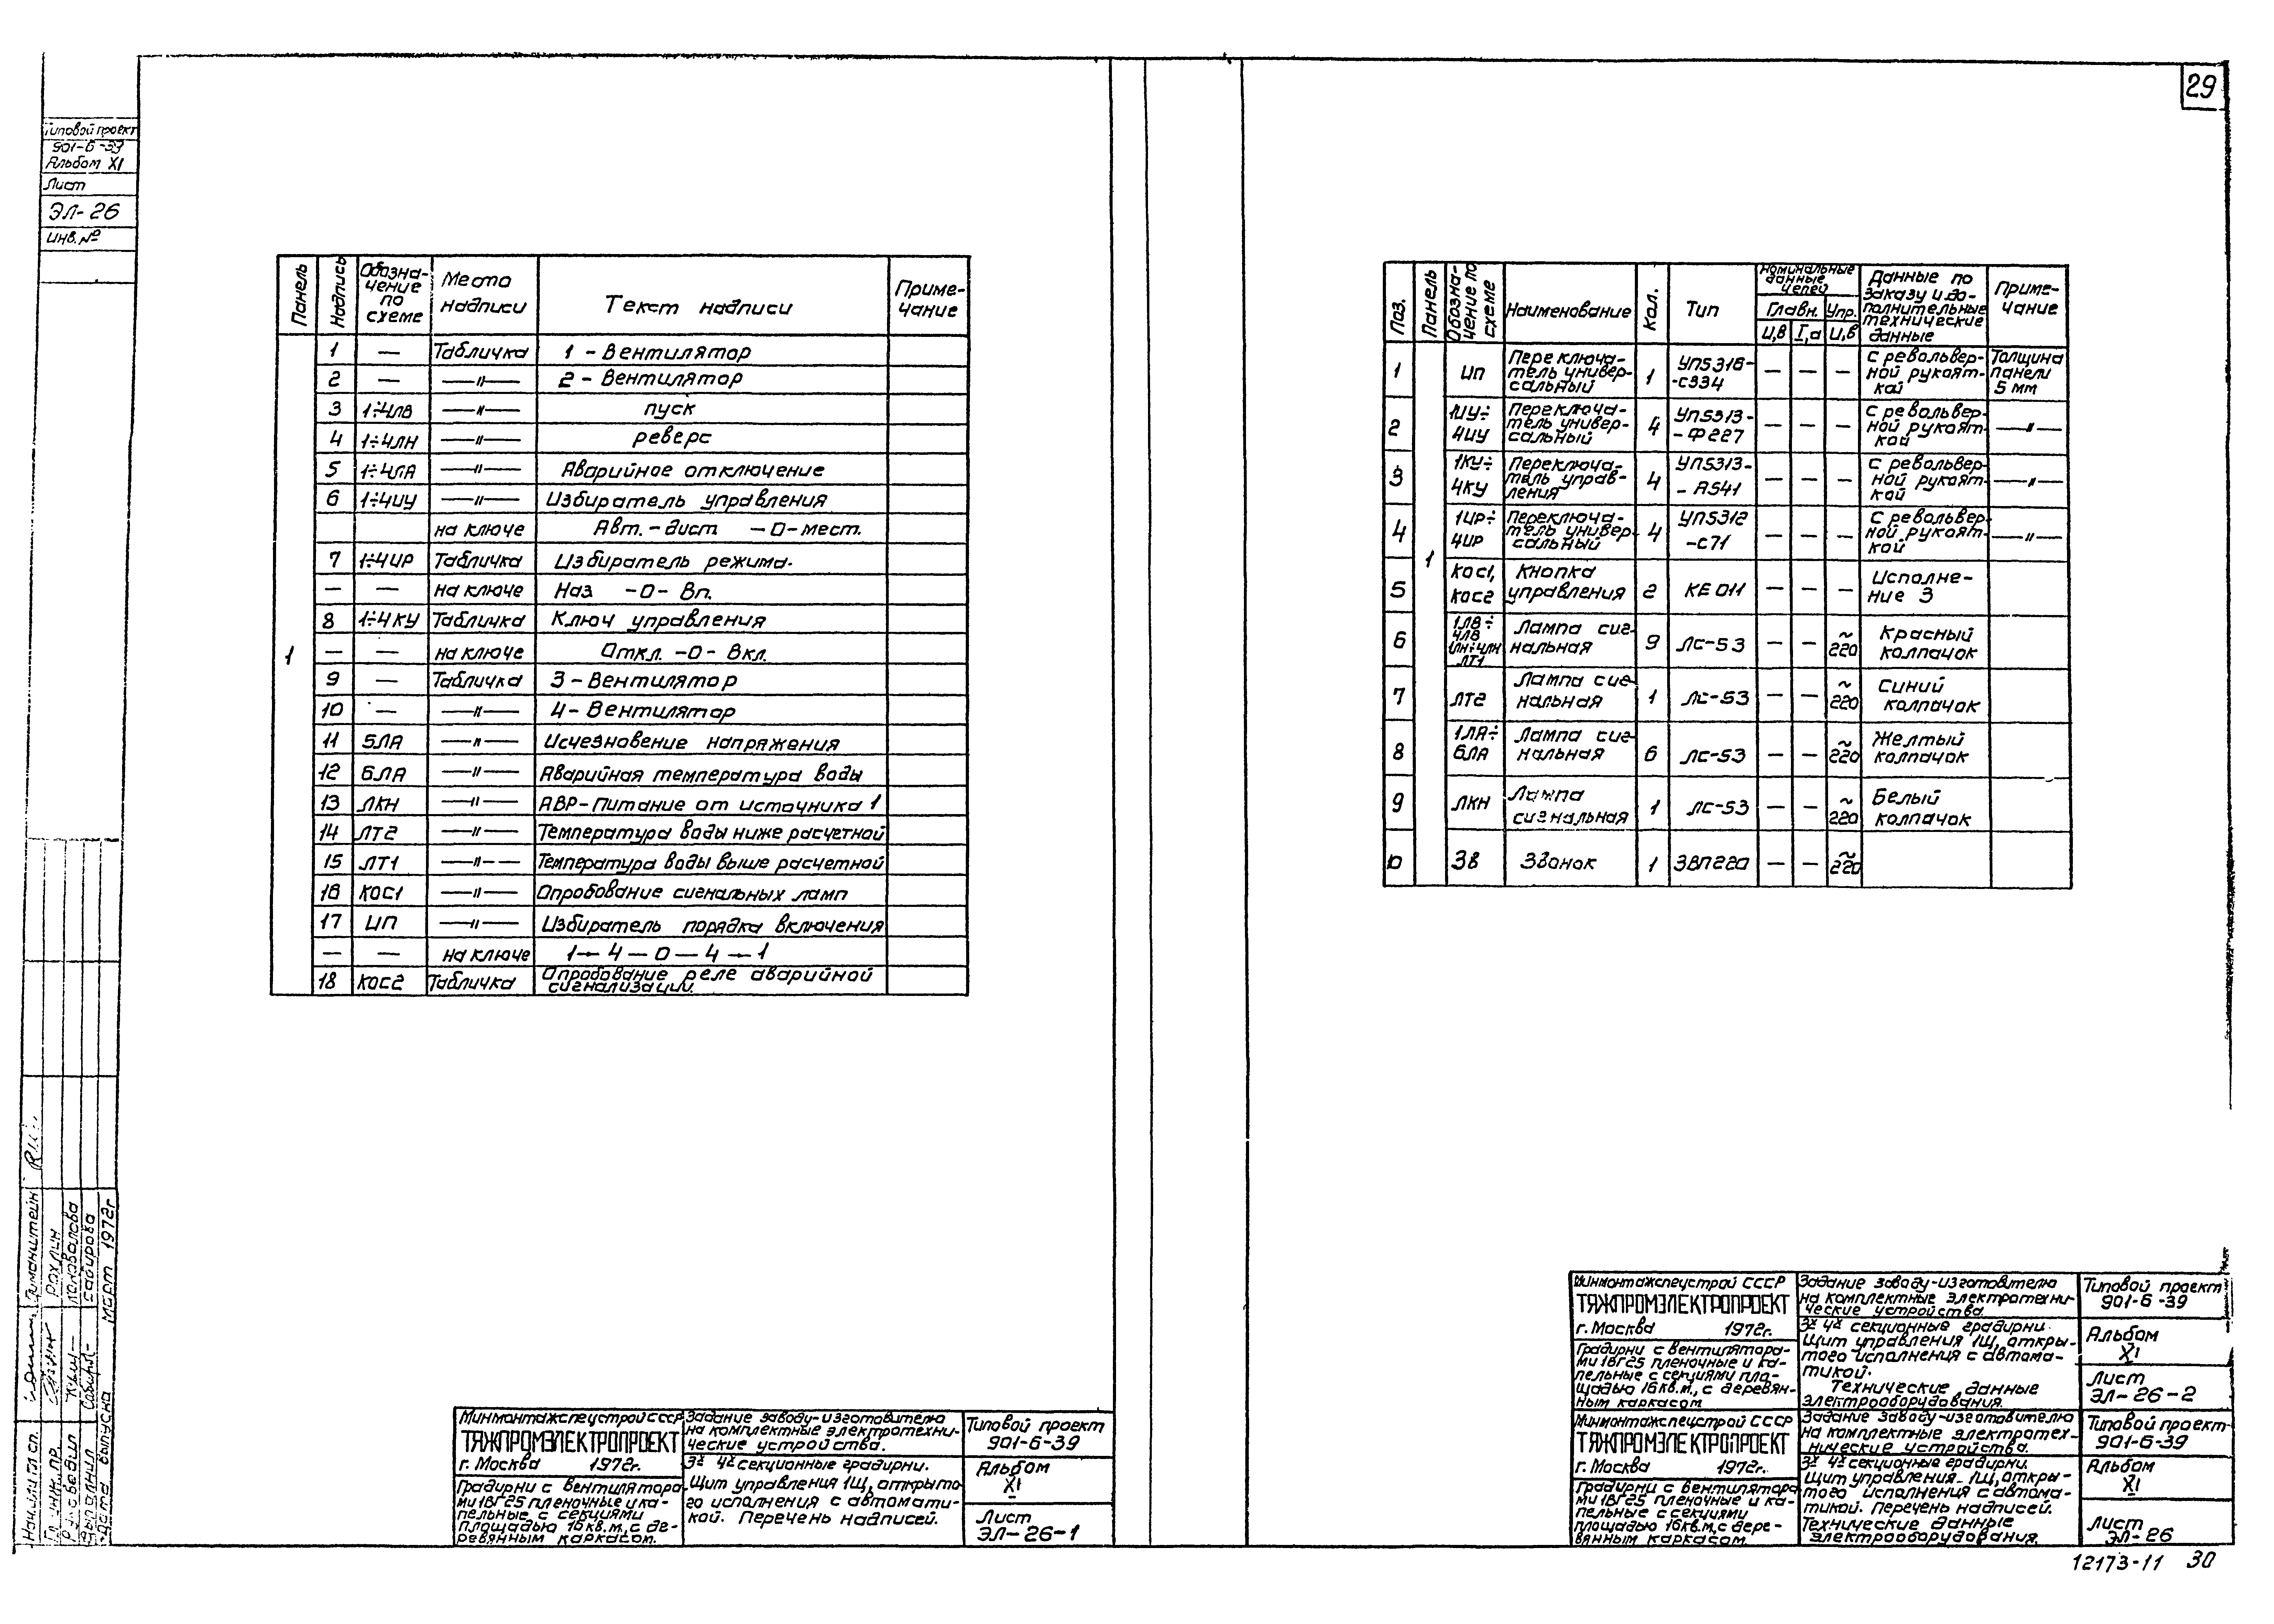 29
Типовой проект
901-6-39
Альбом XI
Лист
ЭЛ-26
Инв.№
Панель
Надпись
Обозна-
чение
по
схеме
Место
надписи
Текст надписи
Приме-
чание
1
1 — Табличка 1 - Вентилятор
2 — —"— 2 - Вентилятор
3 1÷4ЛВ —"— пуск
4 1÷4ЛН —"— реверс
5 1÷4ЛА —"— Аварийное отключение
6 1÷4ИУ —"— Избиратель управления
на ключе Авт.-дист -О-мест.
7 1÷4ИР Табличка Избиратель режима.
— — на ключе Наз -О- Вп.
8 1÷4КУ Табличка Ключ управления
— — на ключе Откл. -О- Вкл.
9 — Табличка 3 - Вентилятор
10 — —"— 4 - Вентилятор
11 5ЛА —"— Исчезновение напряжения
12 6ЛА —"— Аварийная температура воды
13 ЛКН —"— АВР-Питание от источника 1
14 ЛТ2 —"— Температура воды ниже расчетной
15 ЛТ1 —"— — Температура воды выше расчетной
16 КОС1 —"— Опробование сигнальных ламп
17 ИП —"— Избиратель порядка включения
— — на ключе 1—4—О—4—1
18 КОС2 Табличка Опробование реле аварийной
сигнализации.
Поз.
Панель
Обозна-
чение по
схеме
Наименование
Кол.
Тип
Номинальные
данные
цепей
Главн. Упр.
U,в I,а U,в
Данные по
заказу и до-
полнительные
технические
данные
Приме-
чание
1
1 ИП Переключа-
тель универ-
сальный 1 УП5316-
-С334 — — — с револьвер-
ной рукоят-
кой Толщина
панели
5 мм
2 1ИУ÷
4ИУ Переключа-
тель универ-
сальный 4 УП5313-
-Ф227 — — — с револьвер-
ной рукоят-
кой —"—
3 1КУ÷
4КУ Переключа-
тель управ-
ления 4 УП5313-
-А541 — — — с револьвер-
ной рукоят-
кой —"—
4 1ИР÷
4ИР Переключа-
тель универ-
сальный 4 УП5312
-С71 — — — с револьвер-
ной рукоят-
кой —"—
5 КОС1,
КОС2 Кнопка
управления 2 КЕ 011 — — — Исполне-
ние 3
6 1ЛВ÷
4ЛВ
1ЛН÷4ЛН
ЛТ1 Лампа сиг-
нальная 9 ЛС-53 — — ~
220 Красный
колпачок
7 ЛТ2 Лампа сиг-
нальная 1 ЛС-53 — — ~
220 Синий
колпачок
8 1ЛА÷
6ЛА Лампа сиг-
нальная 6 ЛС-53 — — ~
220 Желтый
колпачок
9 ЛКН Лампа
сигнальная 1 ЛС-53 — — ~
220 Белый
колпачок
10 ЗВ Звонок 1 ЗВП220 — — ~
220
Нач.
Гл. инж. пр. Рахлин
Руководил
Выполнил Сабирова
Дата выпуска март 1972г
Минмонтажспецстрой СССР
ТЯЖПРОМЭЛЕКТРОПРОЕКТ
г. Москва 1972г.
Градирни с вентилятора-
ми 1ВГ25 пленочные и ка-
пельные с секциями
площадью 16кв.м, с де-
ревянным каркасом.
Задание заводу-изготовителю
на комплектные электротехни-
ческие устройства.
3х 4х секционные градирни.
Щит управления 1Щ, открыто-
го исполнения с автомати-
кой. Перечень надписей.
Типовой проект
901-6-39
Альбом
XI
Лист
ЭЛ-26-1
Минмонтажспецстрой СССР
ТЯЖПРОМЭЛЕКТРОПРОЕКТ
г. Москва 1972г.
Градирни с вентилятора-
ми 1ВГ25 пленочные и ка-
пельные с секциями пло-
щадью 16кв.м, с деревян-
ным каркасом
Задание заводу-изготовителю
на комплектные электротехни-
ческие устройства.
3х 4х секционные градирни.
Щит управления 1Щ, откры-
того исполнения с автома-
тикой.
Технические данные
электрооборудования.
Типовой проект
901-6-39
Альбом
XI
Лист
ЭЛ-26-2
Минмонтажспецстрой СССР
ТЯЖПРОМЭЛЕКТРОПРОЕКТ
г. Москва 1972г.
Градирни с вентилятора
ми 1ВГ25 пленочные и ка-
пельные с секциями
площадью 16кв.м, с дере-
вянным каркасом.
Задание заводу-изготовителю
на комплектные электротех-
нические устройства.
3х 4х секционные градирни.
Щит управления 1Щ, откры-
того исполнения с автома-
тикой. Перечень надписей.
Технические данные
электрооборудования.
Типовой проект
901-6-39
Альбом
XI
Лист
ЭЛ-26
12173-11 30